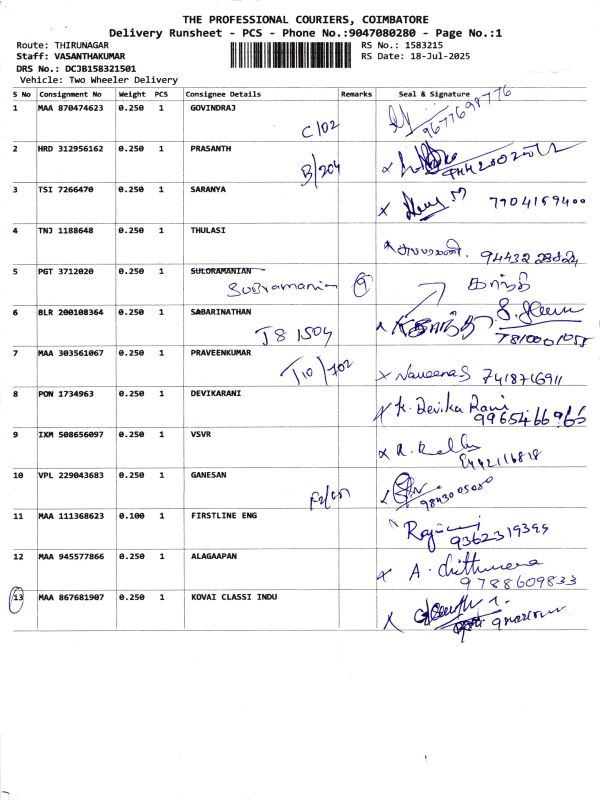 THE PROFESSIONAL COURIERS, COIMBATORE
Delivery Runsheet - PCS - Phone No.:9047080280 - Page No.:1
Route: THIRUNAGAR RS No.: 1583215
Staff: VASANTHAKUMAR RS Date: 18-Jul-2025
DRS No.: DCJB158321501
Vehicle: Two Wheeler Delivery
S No Consignment No Weight PCS Consignee Details Remarks Seal & Signature
1 MAA 870474623 0.250 1 GOVINDRAJ
C/02 9677698776
2 HRD 312956162 0.250 1 PRASANTH
B/204
3 TSI 7266470 0.250 1 SARANYA
7904159400
4 TNJ 1188648 0.250 1 THULASI
5 PGT 3712020 0.250 1 SULORAMANIAN
Subramanian
6 BLR 200108364 0.250 1 SABARINATHAN
J8 1504
7 MAA 303561067 0.250 1 PRAVEENKUMAR
T10/702 x Naveena S 7418716911
8 PON 1734963 0.250 1 DEVIKARANI
K. Devika Rani
9965466966
9 IXM 508656097 0.250 1 VSVR
10 VPL 229043683 0.250 1 GANESAN
9843005080
11 MAA 111368623 0.100 1 FIRSTLINE ENG
12 MAA 945577866 0.250 1 ALAGAAPAN
9788609833
13 MAA 867681907 0.250 1 KOVAI CLASSI INDU